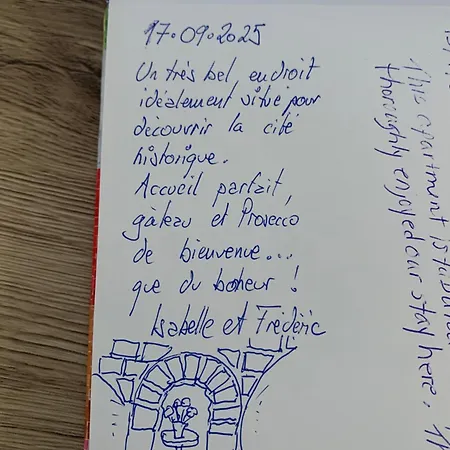 17.09.2025
Un très bel, endroit
idéalement situé pour
découvrir la cité
historique.
Accueil parfait,
gâteau et Prosecco
de bienvenue...
que du boheur !
Isabelle et Frédéric
This apartment is
thoroughly enjoyed our stay here.